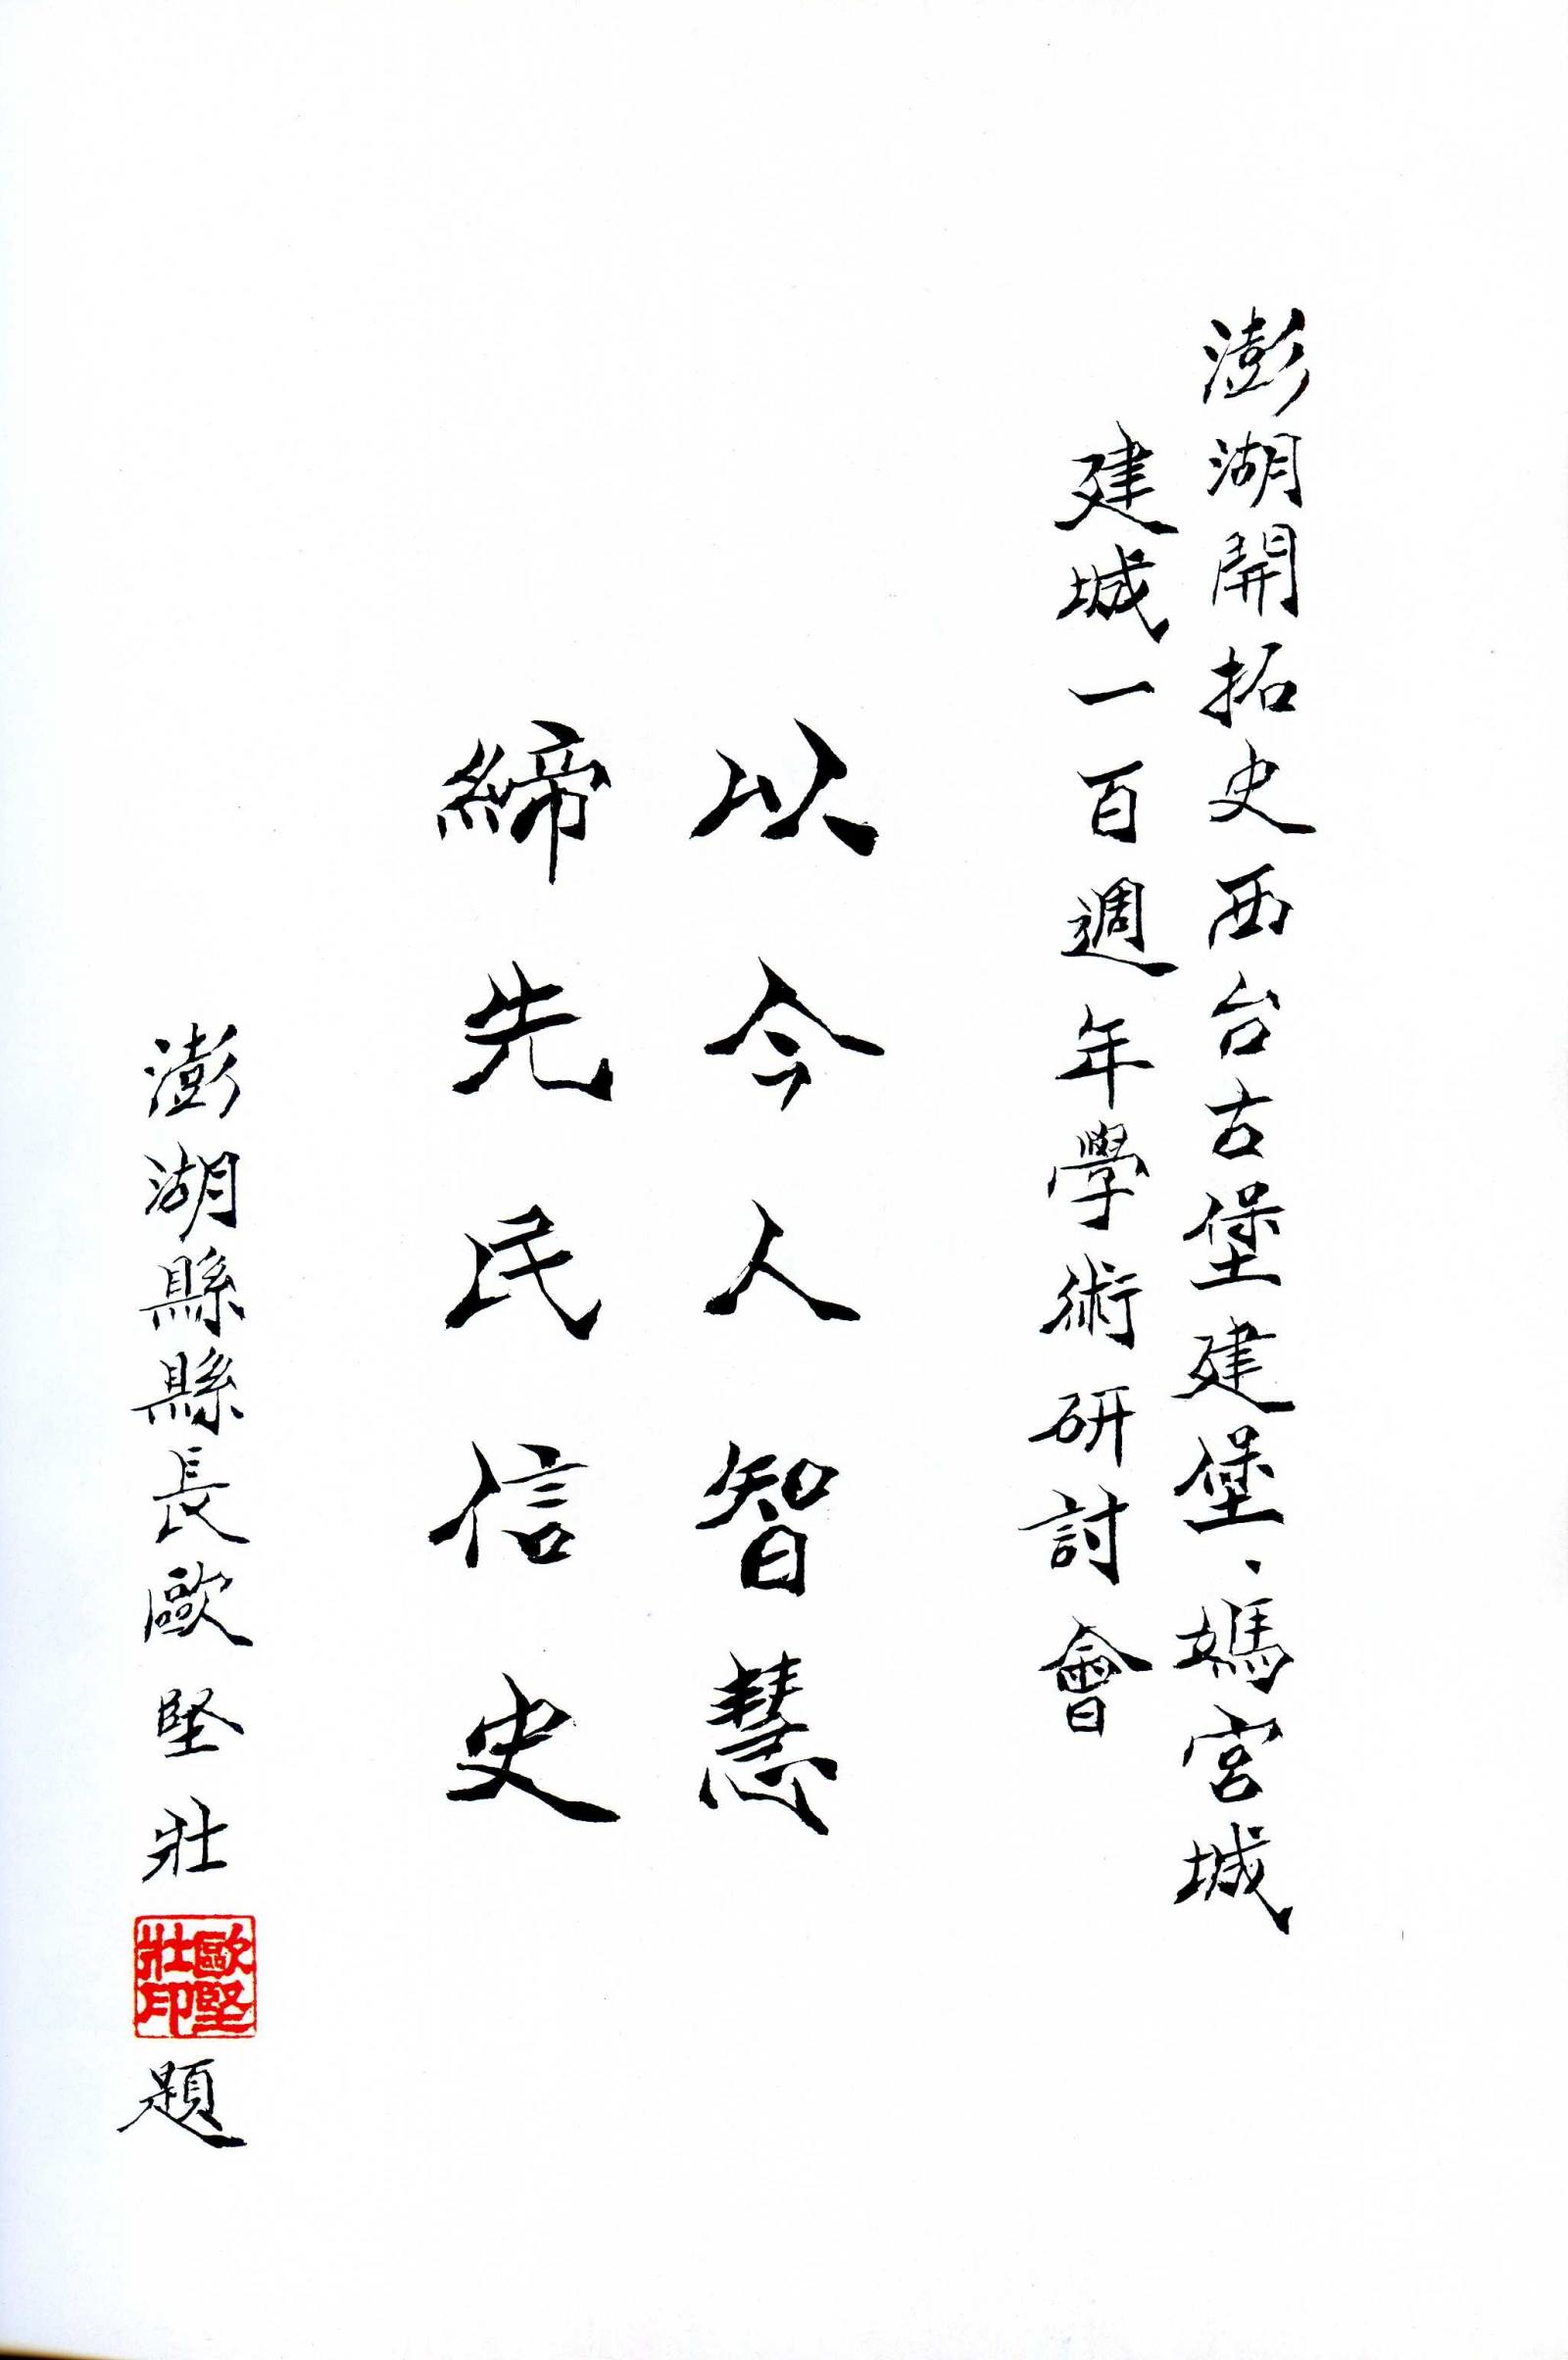 澎湖開拓史西台古堡建堡、媽宮城
建城一百週年學術研討會
以今人智慧
締先民信史
澎湖縣縣長歐堅壯
歐堅
壯印
題